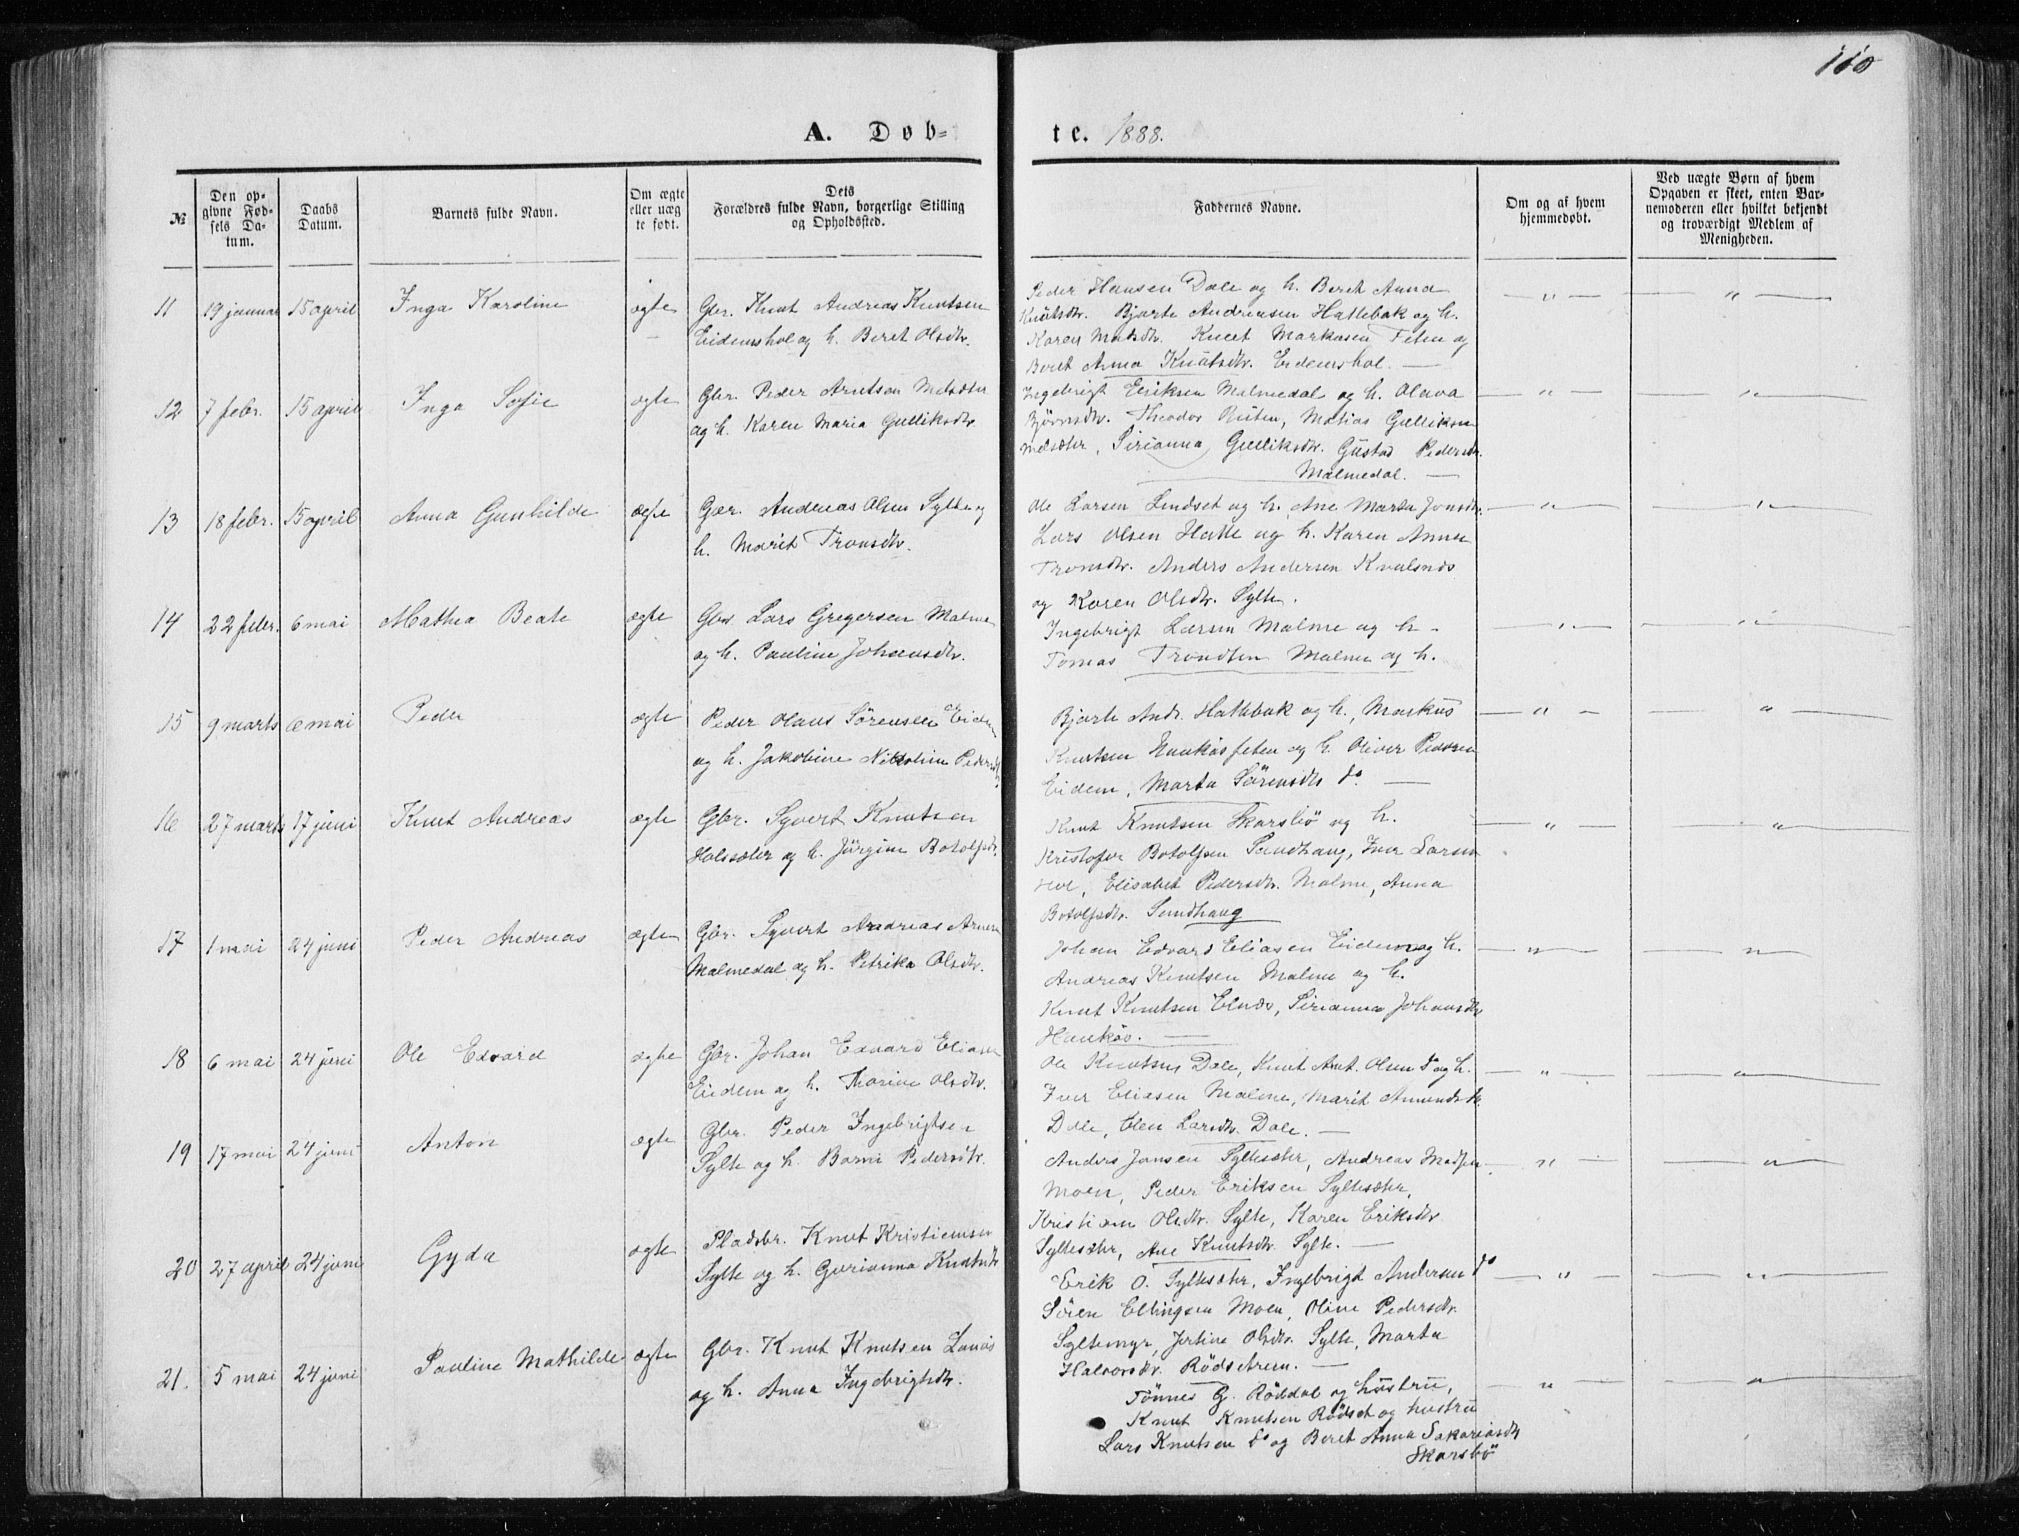 110
A. Døb-
te. 1888.
№
Den op-
givne Fød-
sels Da-
tum.
Daabs
Datum.
Barnets fulde Navn.
Om ægte
eller uæg
te født.
Dets
Forældres fulde Navn, borgerlige Stilling
og Opholdssted.
Faddernes Navne.
Om og af hvem
hjemmedøbt.
Ved uægte Børn af hvem
Opgaven er skeet, enten Bar-
nemoderen eller hvilket bekjendt
og troværdigt Medlem af
Menigheden.
11 19 januar 15 april Inga Karoline ægte
Gbr. Knut Andreas Knutsen
Eidemshol og h. Beret Olsdtr.
Peder Hansen Dale og h. Beret Anna
Knutsdtr. Bjarte Andreasen Hattebak og h.
Karen Matsdtr. Knut Markusen Feten og
Beret Anna Knutsdtr. Eidemshol. —
12 7 febr. 15 april Inga Sofie ægte
Gbr. Peder Arntsen Melsæter
og h. Karen Maria Gulliksdtr.
Ingebrigt Eriksen Malmedal og h. Olava
Bjørnsdtr. Theodor Ruten, Matias Gulliksen
Melsæter, Sirianna Gulliksdtr. Gustad Pedersdtr.
Malmedal. —
13 18 febr. 15 april Anna Gunhilde ægte
Gbr. Andreas Olsen Sylte og
h. Marit Tronsdtr.
Ole Larsen Lindset og h. Ane Marta Jonsdtr.
Lars Olsen Hatle og h. Karen Anna
Tronsdtr. Anders Andersen Kvalsnes
og Karen Olsdtr. Sylte.
14 22 febr. 6 mai Mathea Beate ægte
Gbr. Lars Gregersen Malme
og h. Pauline Johansdtr.
Ingebrigt Larsen Malme og h.
Tomas Trondsen Malme og h.
15 9 marts 6 mai Peder ægte
Peder Olaus Sørensen Eidem
og h. Jakobine Nikoline Pedersdtr.
Bjarte Andr. Hattebak og h., Markus
Knutsen Haukåsfeten og h. Oliver Pedersen
Eidem, Marta Sørensdtr do. —
16 27 marts 17 juni Knut Andreas ægte
Gbr. Syvert Knutsen
Holssæter og h. Jørgine Botolfsdtr.
Knut Knutsen Skarsbø og h.
Kristofer Botolfsen Sandhaug, Iver Larsen
Hol, Elisabet Pedersdtr. Malme, Anna
Botolfsdtr. Sandhaug
17 1 mai 24 juni Peder Andreas ægte
Gbr. Syvert Andreas Arnesen
Malmedal og h. Petrika Olsdtr.
Johan Edvard Eliasen Eidem og h.
Andreas Knutsen Malme og h.
Knut Knutsen Elnæs, Sirianna Johansdtr
Haukås. —
18 6 mai 24 juni Ole Edvard ægte
Gbr. Johan Edvard Eliasen
Eidem og h. Thorine Olsdtr.
Ole Knutsen Dale, Knut Ant. Olsen do og h.
Iver Eliasen Malme, Marit Amundsdtr.
Dale, Elen Larsdtr. Dale. —
19 17 mai 24 juni Anton ægte
Gbr. Peder Ingebrigtsen
Sylte og h. Barni Pedersdtr.
Anders Jansen Syltesæter, Andreas Madsen
Moen, Peder Eriksen Syltesæter,
Kristiane Olsdtr. Sylte, Karen Eriksdtr
Syltesæter, Ane Knutsdtr. Sylte. —
20 27 april 24 juni Gyda ægte
Pladsbr. Knut Kristiansen
Sylte og h. Gurianna Knutsdtr
Erik O. Syltesæter, Ingebrigt Andersen do
Søren Ellingsen Moen, Oline Pedersdtr.
Syltemyr, Jertine Olsdtr. Sylte, Marta
Halvorsdtr. Rødsetrem. —
21. 5 mai 24 juni Pauline Mathilde ægte
Gbr. Knut Knutsen Lanås
og h. Anna Ingebrigtsdtr.
Tønnes G. Røddal og hustru,
Knut Knutsen Rødset og hustru
Lars Knutsen do og Beret Anna Sakariasdtr
Skarsbø